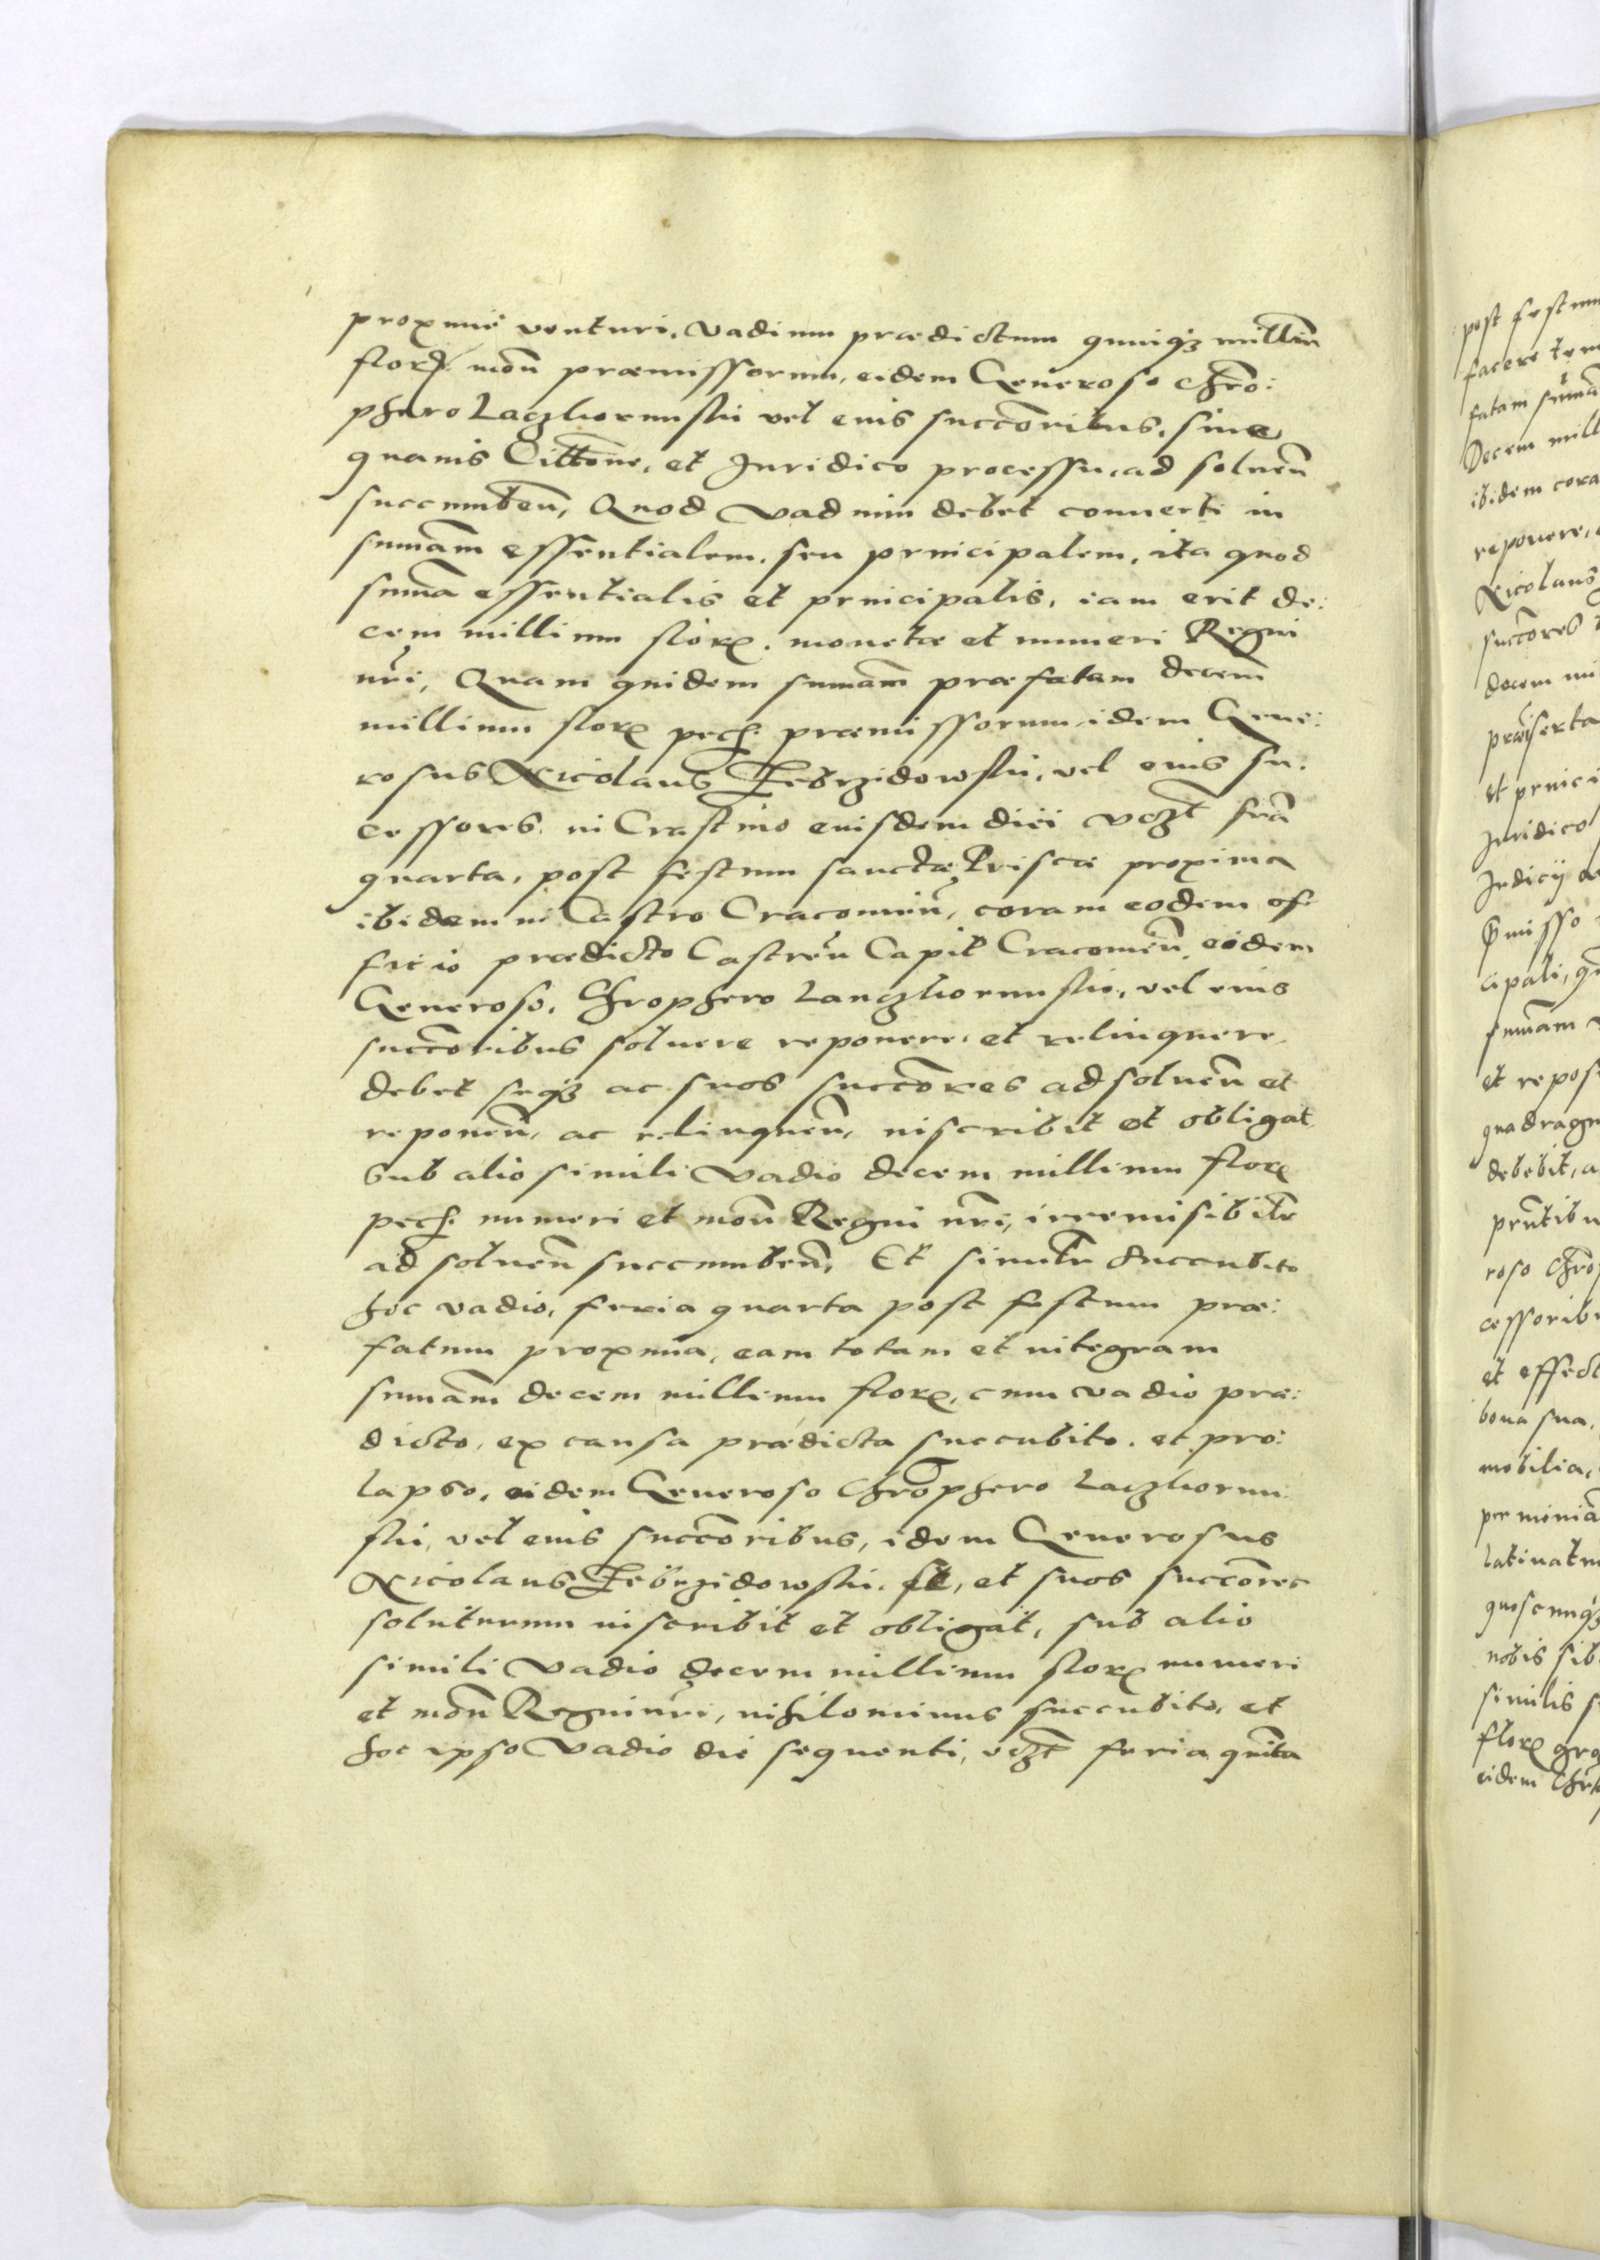 proxime venturi, vadium prædictum quinq3 milliũ
florẽ. moñ præmissorum, eidem Generoso Chrõ:
phero vel eius succõribus, sine
quauis Cittõne, et Iuridico processu, ad soluen̄
succumben̄, Quod vadium debet conuerti in
sum̃am essentialem, seu principalem, ita quod
sum̃a essentialis et principalis, iam erit de:
cem millium florƺ. monetæ et numeri Regni
nr̃i, Quam quidem sum̃am præfatam decem
millium florƺ pech præmissorum, idem Gene:
rosus Nicolaus Zebrzidowskii, vel eius suc:
cessores, in Crastino eiusdem diei vcƺt fr̃ia
quarta, post festum sanctæ Priscæ proxima
ibidem in Castro Cracouien̄, coram eodem of:
ficio prædicto Castren̄ Capit Cracouien̄, eidem
Generoso, Chrophero vel eius
succõribus soluere reponere, et relinquere
debet seq3 ac suos succõres ad soluen̄ et
reponen̄, ac relinquen̄, inscribit et obligat
Sub alio simili vadio decem millium florƺ
pech numeri et moñ Regni nr̃i, irremisibilr̃
ad soluen̄ succumben̄, Et similr̃ succubito
hoc vadio, feria quarta post festum præ:
fatum proxima, eam totam et integram
sum̃am decem millium florƺ, cum vadio præ:
dicto, ex causa prædicta succubito, et pro:
lapso, eidem Generoso Chrõphero
vel eius succõribus, idem Generosus
Nicolaus Zebrzidowskii, se, et suos succõres
soluturum inscribit et obligat, sub alio
simili vadio decem millium florƺ numeri
et moñ Regni nr̃i, nihilominus succubito, et
hoc ipso vadio die sequenti, vcƺt feria quinta
post festum
facere
fatam sum̃am
Decem mill
ibidem cora
reponere,
Nicolaus
succõres
decem mi
et princi
Iuridico
Iudicij
cipali,
sum̃am
et repos
quadrag
debebit, a
roso Chro
cessorib
et effect
bona sua,
mobilia,
quoscunq3
nobis sib
similis s
florƺ
eidem Chr